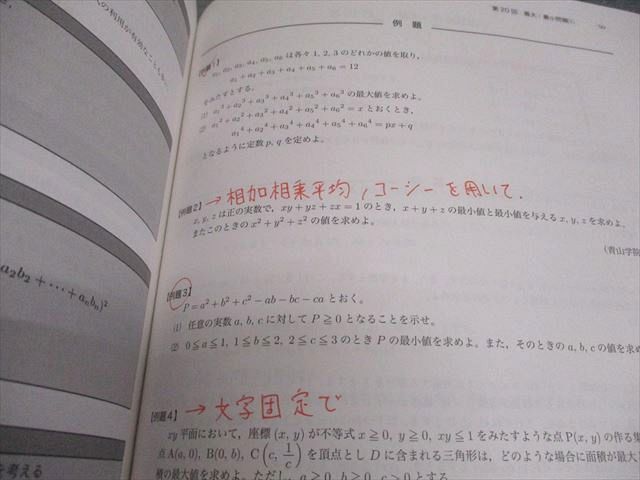 の利用が有効なことも
第20回 最大・最小問題
例題
【例題1】
a₁, a₂, a₃, a₄, a₅, a₆ は各々 1, 2, 3 のどれかの値を取り，
a₁ + a₂ + a₃ + a₄ + a₅ + a₆ = 12
をみたすとする．
(1) a₁³ + a₂³ + a₃³ + a₄³ + a₅³ + a₆³ の最大値を求めよ．
(2) a₁² + a₂² + a₃² + a₄² + a₅² + a₆² = x とおくとき，
a₁⁴ + a₂⁴ + a₃⁴ + a₄⁴ + a₅⁴ + a₆⁴ = px + q
となるように定数 p, q を定めよ．
【例題2】→ 相加相乗平均，コーシーを用いて．
x, y, z は正の実数で，xy + yz + zx = 1 のとき，x + y + z の最小値と最小値を与える x, y, z を求めよ．
またこのときの x² + y² + z² の値を求めよ．
(青山学院
a₂b₂ + ⋯ + aₙbₙ)²
【例題3】
P = a² + b² + c² − ab − bc − ca とおく．
(1) 任意の実数 a, b, c に対して P ≧ 0 となることを示せ．
(2) 0 ≦ a ≦ 1, 1 ≦ b ≦ 2, 2 ≦ c ≦ 3 のとき P の最小値を求めよ．また，そのときの a, b, c の値を求め
【例題4】→ 文字固定で
xy 平面において，座標 (x, y) が不等式 x ≧ 0, y ≧ 0, xy ≦ 1 をみたすような点 P(x, y) の作る集
点 A(a, 0), B(0, b), C(c, 1/c) を頂点とし D に含まれる三角形は，どのような場合に面積が最大
積の最大値を求めよ．ただし，a ≧ 0, b ≧ 0, c > 0 とする．
を考える